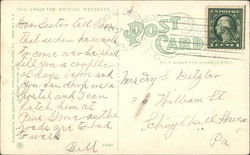 THIS SPACE FOR WRITING MESSAGES
POST CARD
Dear Sister tell Chas
that when he wants
to come over he should
tell you a couple
days before and
you can drop us a
postal and I can
fetch him at
Pine Grove as the
roads are to bad
to walk
THIS SPACE FOR ADDRESS ONLY
Mrs Day S Ditzler
William St
Schuylkill Haven
Pa